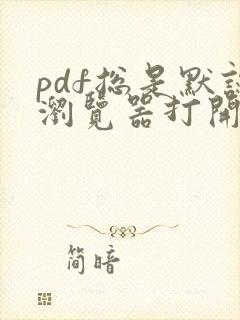 pdf总是默认
瀏覽器打開
简暗